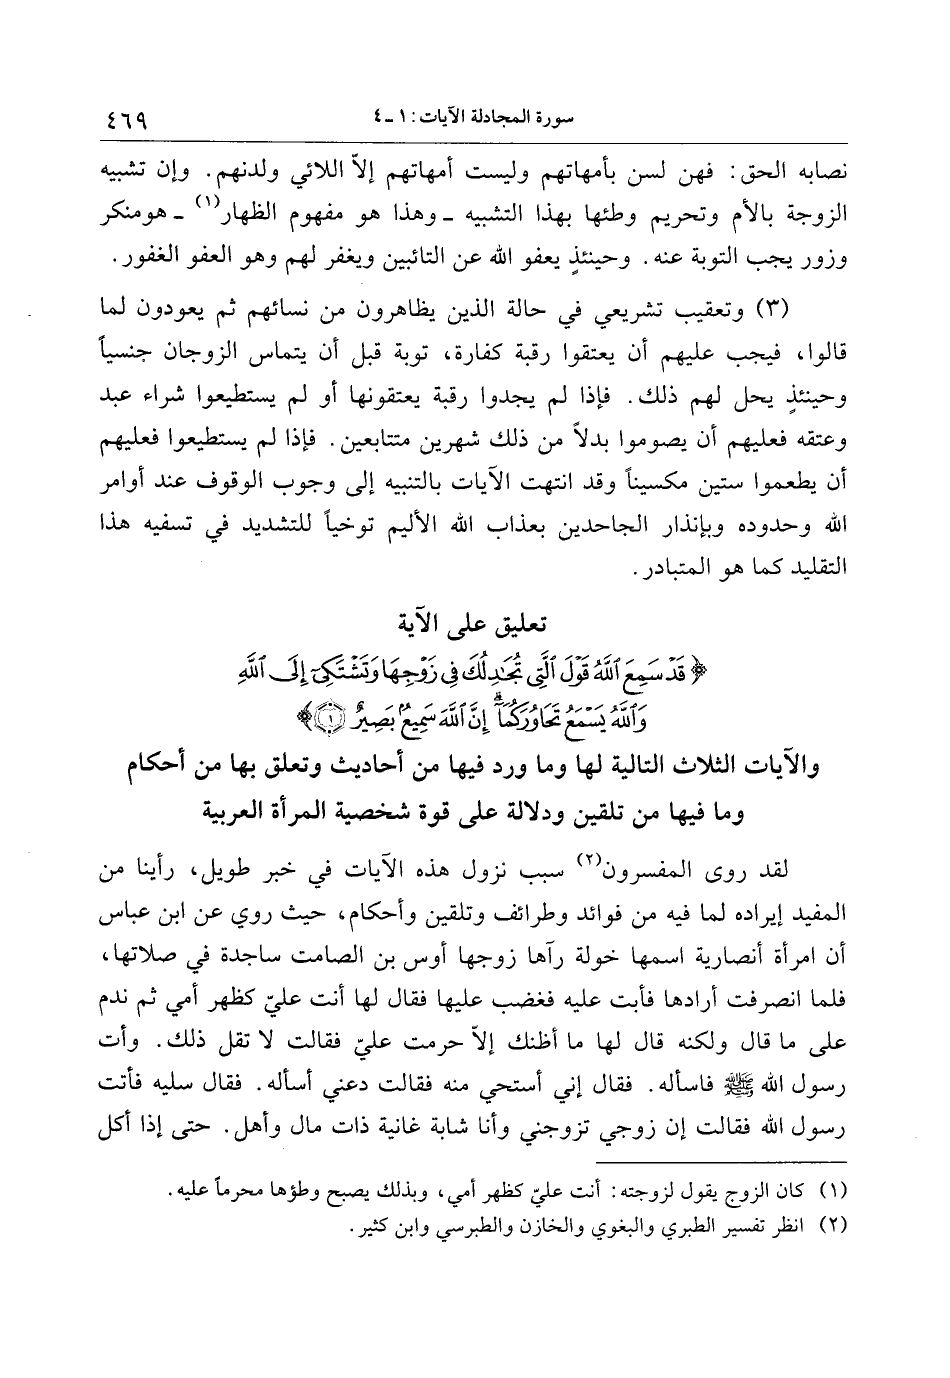 سورة المجادلة الآيات: ١ ـ ٤
٤٦٩
نصابه الحق: فهن لسن بأمهاتهم وليست أمهاتهم إلاّ اللائي ولدنهم. وإن تشبيه
الزوجة بالأم وتحريم وطئها بهذا التشبيه ـ وهذا هو مفهوم الظهار(١) ـ هو منكر
وزور يجب التوبة عنه. وحينئذٍ يعفو الله عن التائبين ويغفر لهم وهو العفو الغفور.
(٣) وتعقيب تشريعي في حالة الذين يظاهرون من نسائهم ثم يعودون لما
قالوا، فيجب عليهم أن يعتقوا رقبة كفارة، توبة قبل أن يتماس الزوجان جنسياً
وحينئذٍ يحل لهم ذلك. فإذا لم يجدوا رقبة يعتقونها أو لم يستطيعوا شراء عبد
وعتقه فعليهم أن يصوموا بدلاً من ذلك شهرين متتابعين. فإذا لم يستطيعوا فعليهم
أن يطعموا ستين مكسيناً وقد انتهت الآيات بالتنبيه إلى وجوب الوقوف عند أوامر
الله وحدوده وبإنذار الجاحدين بعذاب الله الأليم توخياً للتشديد في تسفيه هذا
التقليد كما هو المتبادر.
تعليق على الآية
﴿قَدْ سَمِعَ ٱللَّهُ قَوْلَ ٱلَّتِى تُجَٰدِلُكَ فِى زَوْجِهَا وَتَشْتَكِىٓ إِلَى ٱللَّهِ
وَٱللَّهُ يَسْمَعُ تَحَاوُرَكُمَآ ۚ إِنَّ ٱللَّهَ سَمِيعٌۢ بَصِيرٌ ١﴾
والآيات الثلاث التالية لها وما ورد فيها من أحاديث وتعلق بها من أحكام
وما فيها من تلقين ودلالة على قوة شخصية المرأة العربية
لقد روى المفسرون(٢) سبب نزول هذه الآيات في خبر طويل، رأينا من
المفيد إيراده لما فيه من فوائد وطرائف وتلقين وأحكام، حيث روي عن ابن عباس
أن امرأة أنصارية اسمها خولة رآها زوجها أوس بن الصامت ساجدة في صلاتها،
فلما انصرفت أرادها فأبت عليه فغضب عليها فقال لها أنت عليّ كظهر أمي ثم ندم
على ما قال ولكنه قال لها ما أظنك إلاّ حرمت عليّ فقالت لا تقل ذلك. وأت
رسول الله ﷺ فاسأله. فقال إني أستحي منه فقالت دعني أسأله. فقال سليه فأتت
رسول الله فقالت إن زوجي تزوجني وأنا شابة غانية ذات مال وأهل. حتى إذا أكل
(١) كان الزوج يقول لزوجته: أنت عليّ كظهر أمي، وبذلك يصبح وطؤها محرماً عليه.
(٢) انظر تفسير الطبري والبغوي والخازن والطبرسي وابن كثير.